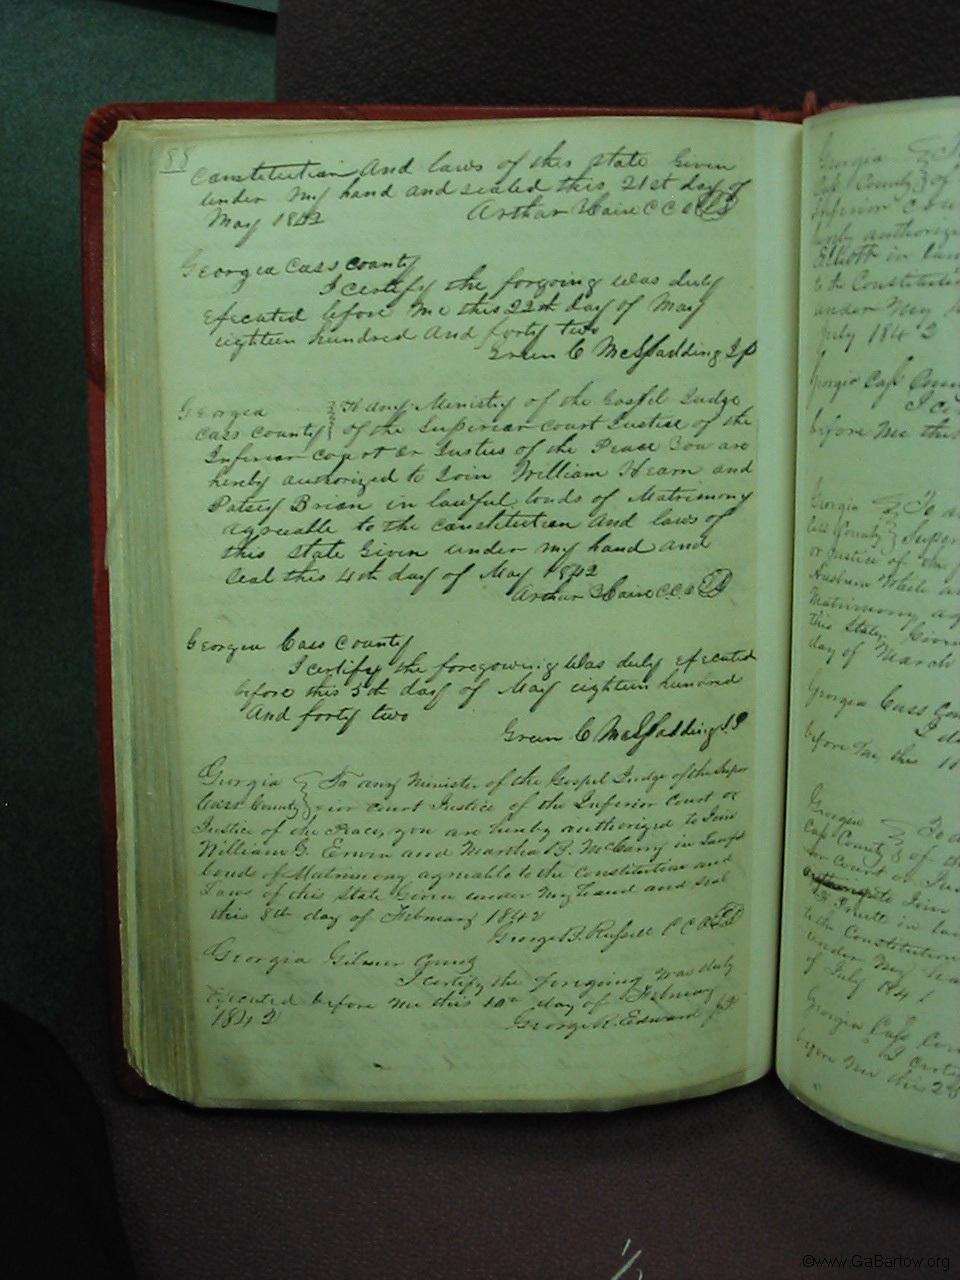 88
Constitution And laws of this state Given
under my hand and sealed this 21st day of
May 1842 Arthur Haire C C O LS
Georgia Cass County
I certify the forgoing was duly
Executed before me this 22th day of May
eighteen hundred And forty two
Green C McSpadding J P
Georgia To any Ministry of the Gospel Judge
Cass County of the Superior Court Justice of the
Inferior Court Or Justies of the Peace You are
hereby authorized to Join William Hearn and
Patsey Brian in lawful bonds of Matrimony
agreeable to the constitution And laws of
this state Given under my hand and
Seal this 4th day of May 1842
Arthur Haire C.C.O LS
Georgia Cass County
I certify the foregowing Was duly Executed
before this 5th day of May eighteen hundred
And forty two
Green C McSpadding J.P
Georgia To any Minister of the Gospel Judge of the Super
Cass County ior court Justice of the Inferior Court or
Justice of the Peace, you are hereby authorized to Join
William G. Erwin and Martha in Lawful
bond of Matrimony agreable to the Constitution and
Laws of this State Given under My hand and seal
this 8th day of February 1842
George F. Russell C C O LS
Georgia Gilmer County
I certify the foregoing was duly
Executed before me this 10th day of February
1842 George R. Edward JP
Georgia
Cass County of
Superior Cou
hereby authorize
Elliott in law
to the Constituti
under My
July 1842
Georgia Cass Coun
I ce
before Me this
Georgia To a
Cass County Super
or Justice of the
White a
Matrimony ag
this State Given
day of March
Georgia Cass Co
I
before Me this 10
Georgia To a
Cass County of the
Court or Jus
to Join
in la
to the Constitution
under My ha
of July 1841
Georgia Cass Co
I certi
before me this 28
©www.GaBartow.org